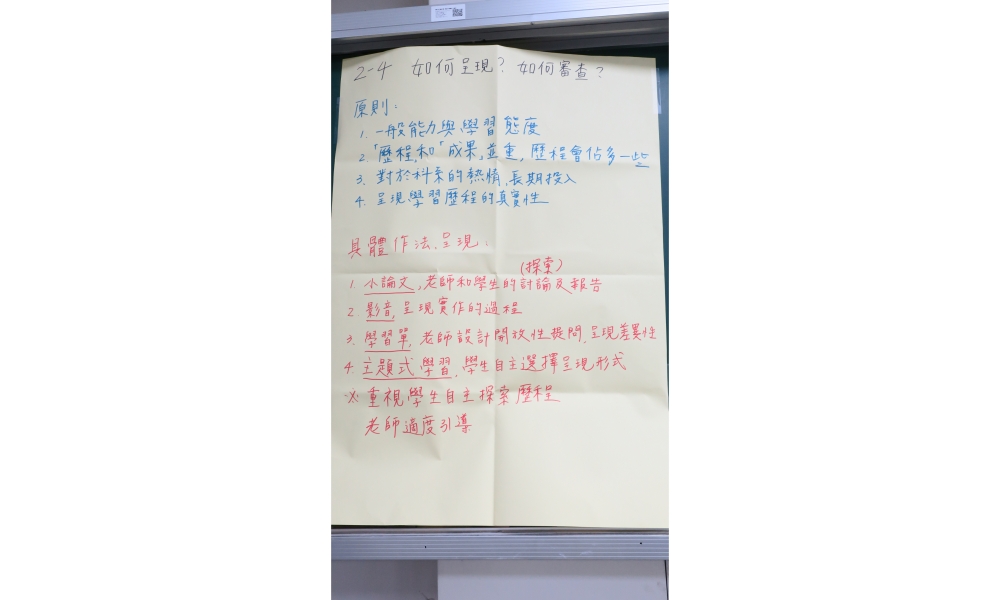 2-4 如何呈現? 如何審查?
原則:
1. 一般能力與學習態度
2.「歷程」和「成果」並重, 歷程會佔多一些
3. 對於科系的熱情、長期投入
4. 呈現學習歷程的真實性
具體作法、呈現:
(探索)
1. 小論文, 老師和學生的討論及報告
2. 影音, 呈現實作的過程
3. 學習單, 老師設計開放性提問, 呈現差異性
4. 主題式學習, 學生自主選擇呈現形式
※ 重視學生自主探索歷程
老師適度引導